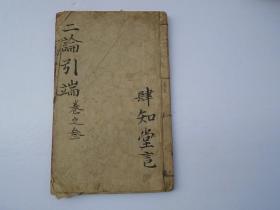 二論引端
卷之叁
肆知堂言